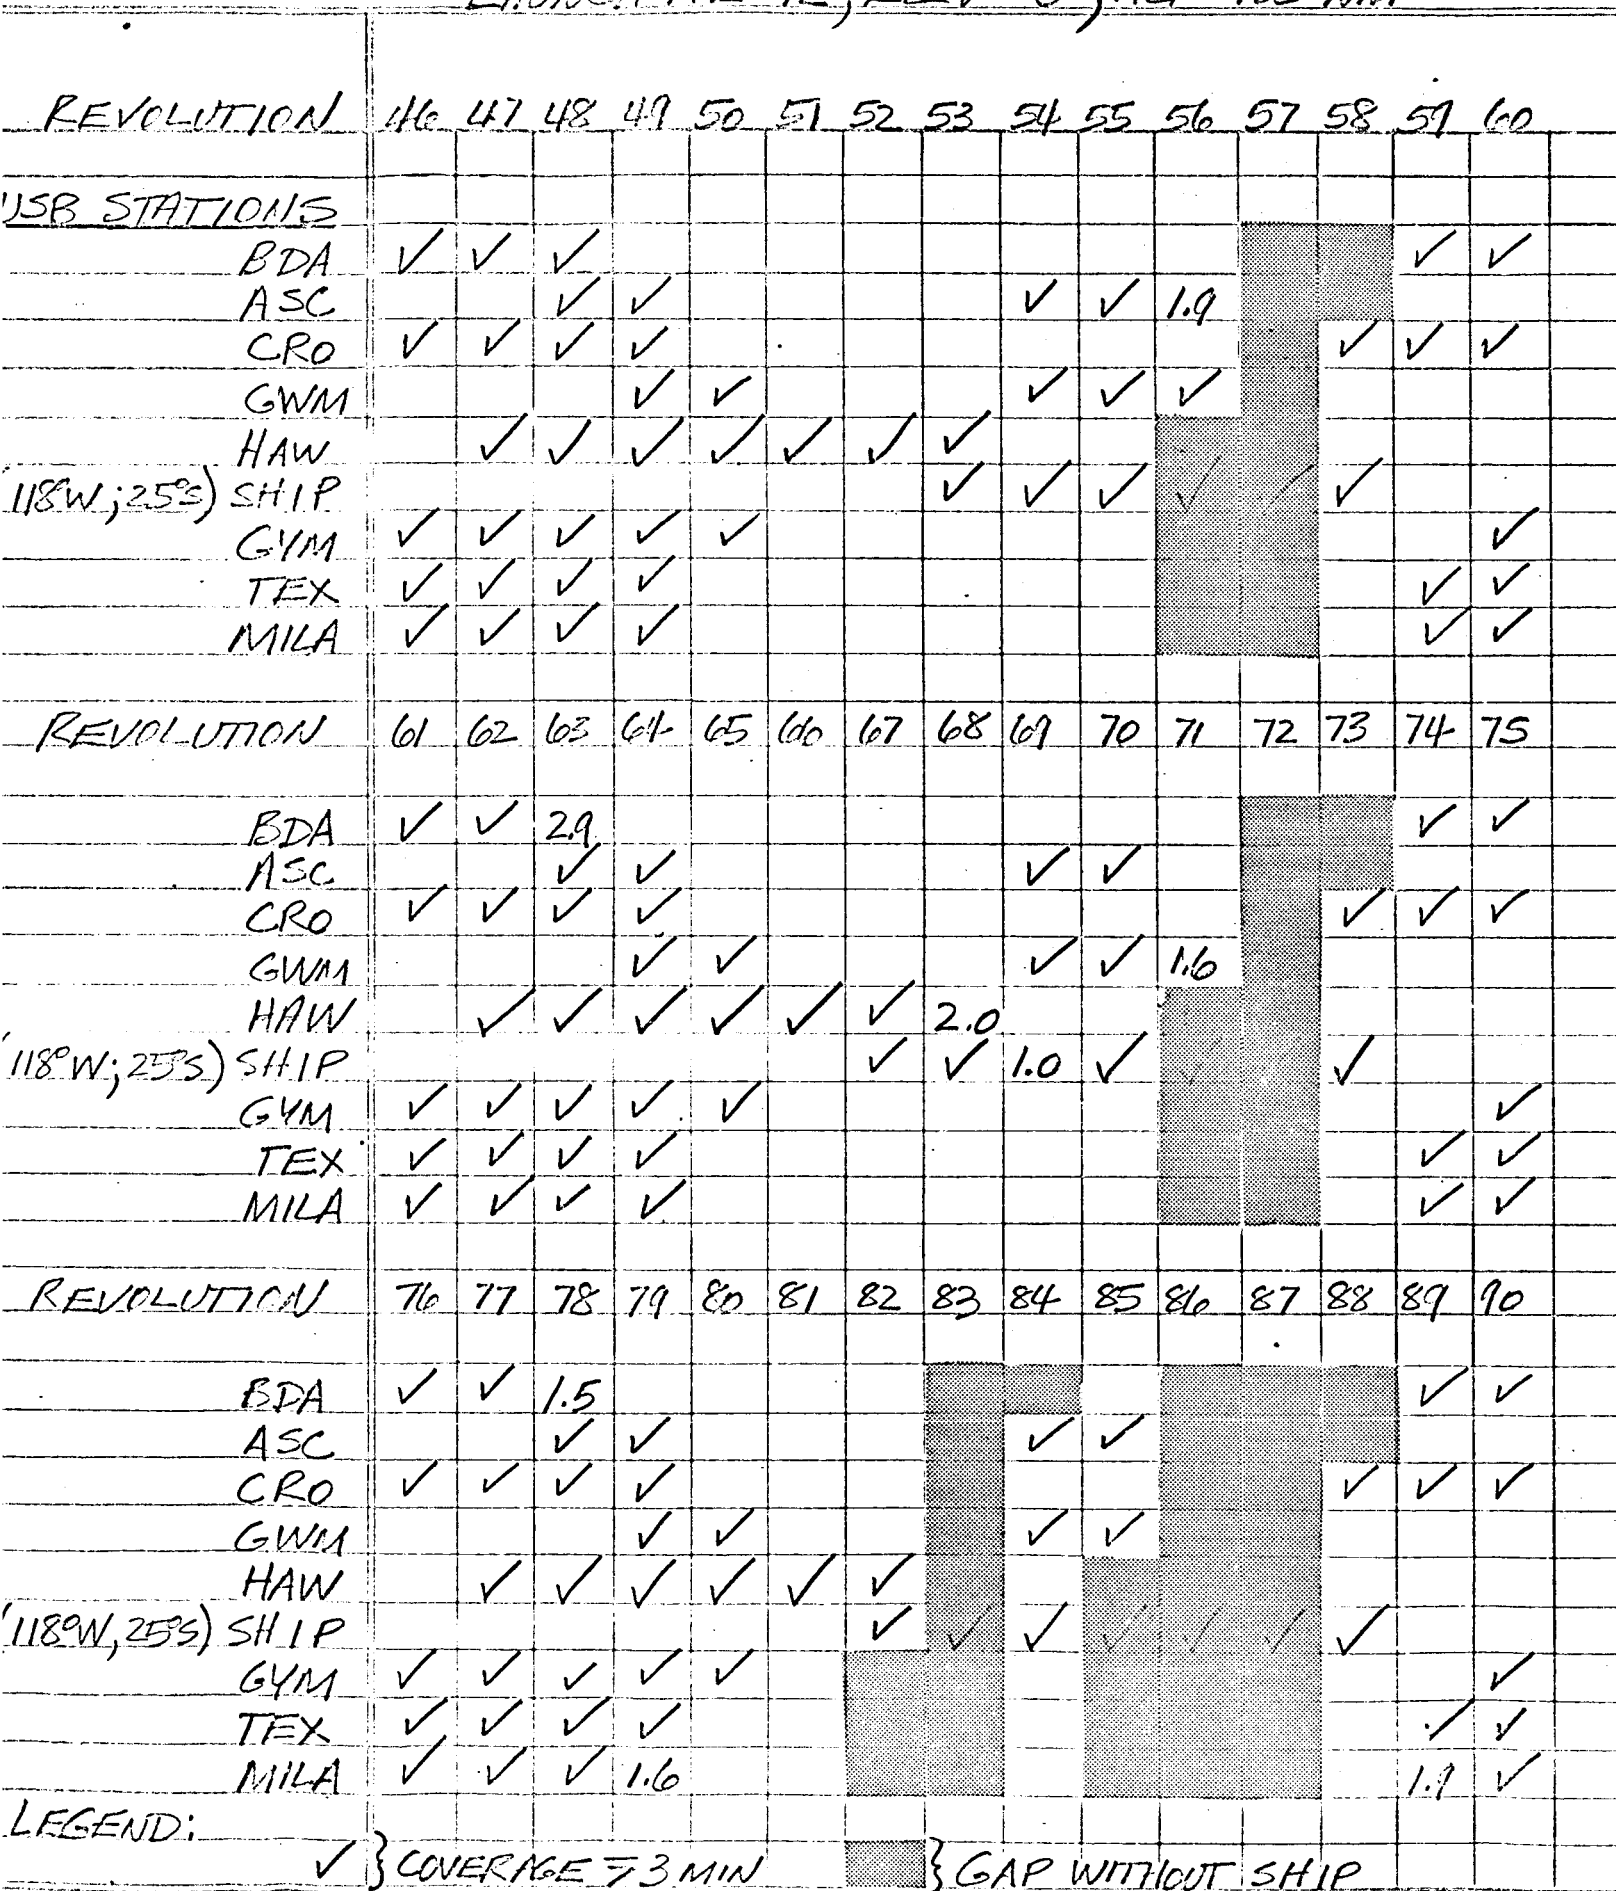 REVOLUTION 46 47 48 49 50 51 52 53 54 55 56 57 58 59 60
USB STATIONS
BDA ✓ ✓ ✓ ✓ ✓
ASC ✓ ✓ ✓ ✓ 1.9
CRO ✓ ✓ ✓ ✓ ✓ ✓ ✓
GWM ✓ ✓ ✓ ✓ ✓
HAW ✓ ✓ ✓ ✓ ✓ ✓ ✓
(118°W; 25°S) SHIP ✓ ✓ ✓ ✓ ✓ ✓
GYM ✓ ✓ ✓ ✓ ✓ ✓
TEX ✓ ✓ ✓ ✓ ✓ ✓
MILA ✓ ✓ ✓ ✓ ✓ ✓
REVOLUTION 61 62 63 64 65 66 67 68 69 70 71 72 73 74 75
BDA ✓ ✓ 2.9 ✓ ✓
ASC ✓ ✓ ✓ ✓
CRO ✓ ✓ ✓ ✓ ✓ ✓ ✓
GWM ✓ ✓ ✓ ✓ 1.6
HAW ✓ ✓ ✓ ✓ ✓ ✓ 2.0
(118°W; 25°S) SHIP ✓ ✓ 1.0 ✓ ✓ ✓
GYM ✓ ✓ ✓ ✓ ✓ ✓
TEX ✓ ✓ ✓ ✓ ✓ ✓
MILA ✓ ✓ ✓ ✓ ✓ ✓
REVOLUTION 76 77 78 79 80 81 82 83 84 85 86 87 88 89 90
BDA ✓ ✓ 1.5 ✓ ✓
ASC ✓ ✓ ✓ ✓
CRO ✓ ✓ ✓ ✓ ✓ ✓ ✓
GWM ✓ ✓ ✓ ✓
HAW ✓ ✓ ✓ ✓ ✓ ✓
(118°W, 25°S) SHIP ✓ ✓ ✓ ✓ ✓ ✓ ✓
GYM ✓ ✓ ✓ ✓ ✓ ✓
TEX ✓ ✓ ✓ ✓ ✓ ✓
MILA ✓ ✓ ✓ 1.6 1.9 ✓
LEGEND:
✓ } COVERAGE ≥ 3 MIN } GAP WITHOUT SHIP